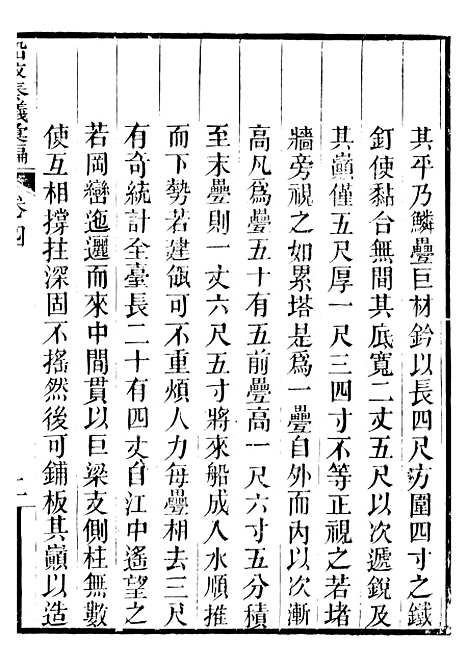 其平乃鱗疊巨材鈐以長四尺方圍四寸之鐵
釘使黏合無間其底寬二丈五尺以次遞銳及
其巔僅五尺厚一尺三四寸不等正視之若堵
牆旁視之如累塔是爲一疊自外而內以次漸
高凡爲疊五十有五前疊高一尺六寸五分積
至末疊則一丈六尺五寸將來船成入水順推
而下勢若建瓴可不重煩人力每疊相去三尺
有奇統計全臺長二十有四丈自江中遙望之
若岡巒迤邐而來中間貫以巨梁支側柱無數
使互相撐拄深固不搖然後可鋪板其巔以造
船政奏議彙編 卷四 二